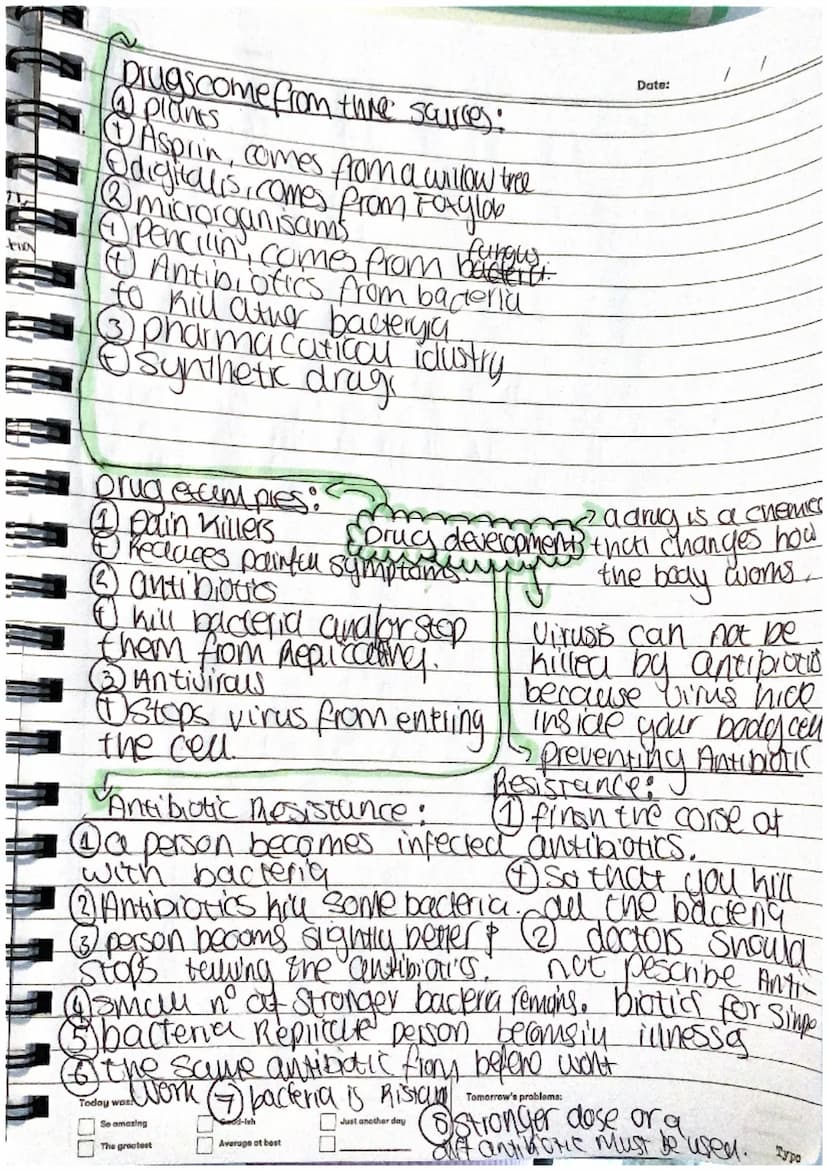 Date: / /
Drugs come from three sources:
① plants
⊕ Asprin, comes from a willow tree
⊕ digitalis, comes from Foxglob
② microrganisams
⊕ Pencilin, comes from fungus
⊕ Antibiotics from bacteria
to kill other bacteria
③ pharmacatical idustry
⊕ synthetic drugs
Drug examples:
① pain killers
⊕ Reduces painful symptoms.
② antibiotis
⊕ kill bacteria and/or stop
them from Replicating.
③ Antivirals
⊕ Stops virus from entring
the cell.
Drug development
a drug is a chemical
that changes how
the body works.
Viruses can not be
killed by antibiotic
because virus hide
inside your body cell
Preventing Antibiotic
Resistance:
① finsh the corse of
antibiotics.
⊕ So that you kill
all the bacteria
② doctors should
not pescribe Anti-
biotics for simpo
Antibiotic Resistance:
① a person becomes infected
with bacteria
② Antibiotics kill some bacteria.
③ person becoms slightly better &
stops the antibiotics.
④ small nº of stronger bactera remains.
⑤ bacteria Replicate person illness
⑥ the same antibiotic from before wont
work ⑦ bacteria is
⑧ stronger dose or a
antibiotic must be used.
Today was:
So amazing
Good-ish
Just another day
The greatest
Average at best
Tomorrow's problems:
Typo